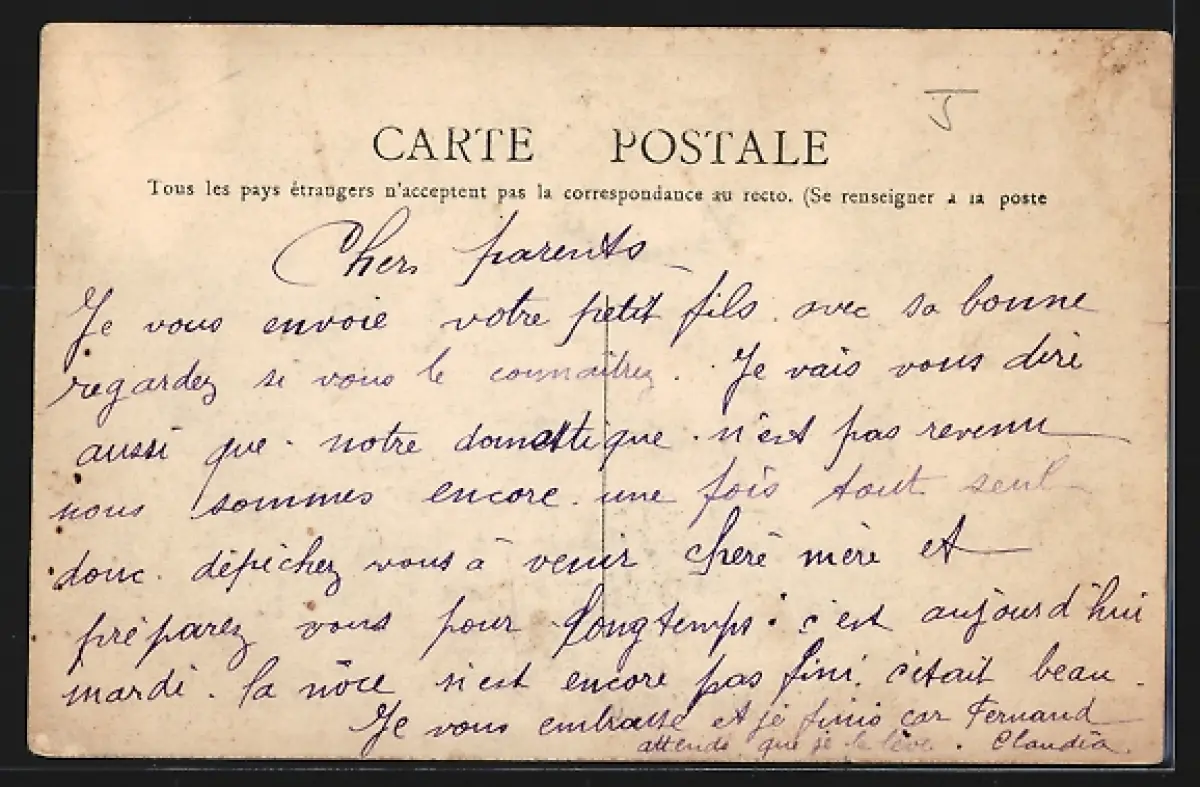 J
CARTE POSTALE
Tous les pays étrangers n'acceptent pas la correspondance au recto. (Se renseigner à la poste
Chers parents
Je vous envoie votre petit fils avec sa bonne
regardez si vous le connaîtrez. Je vais vous dire
aussi que notre domestique n'est pas revenu
nous sommes encore une fois tout seul
donc dépéchez vous à venir cherè mère et
préparez vous pour longtemps. c'est aujourd'hui
mardi. la nôce n'est encore pas fini. c'était beau.
Je vous embrasse et je finis car Fernand
attends que je le lève. Claudia.